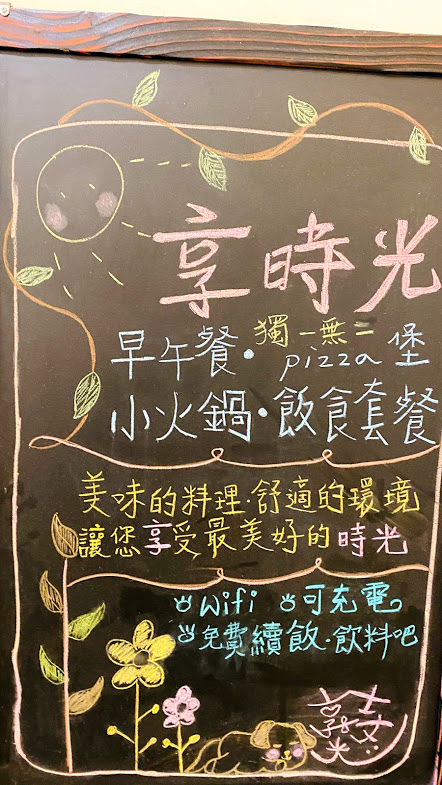 享時光
獨一無二
早午餐·pizza堡
小火鍋·飲食套餐
美味的料理·舒適的環境
讓您享受最美好的時光
Wifi 可充電
免費續飲·飲料吧